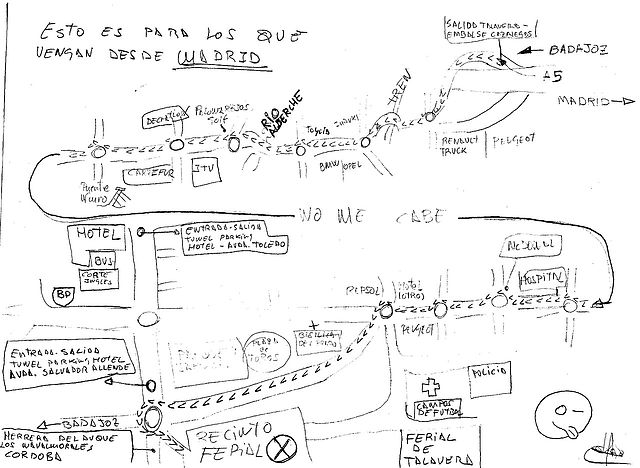 ESTO ES PARA LOS QUE
VENGAN DESDE MADRID
SALIDA TALAVERA-
EMBALSE CAZALEGAS
BADAJOZ
A5
MADRID
TREN
RIO
ALBERCHE
DECATHLON
Toyota
SUZUKI
BMW
OPEL
RENAULT
TRUCK
PEUGEOT
CARREFUR
ITV
Puente
NO ME CABE
HOTEL
BUS
CORTE
INGLES
BP
ENTRADA-SALIDA
TUNEL PARKING
HOTEL-AVDA. TOLEDO
REPSOL
Hotel
(OTRO)
PEUGEOT
HOSPITAL
PLAZA
DE
TOROS
BASILICA
DEL PRADO
ENTRADA-SALIDA
TUNEL PARKING HOTEL
AVDA. SALVADOR ALLENDE
BADAJOZ
HERRERA DEL DUQUE
LOS NAVALMORALES
CORDOBA
RECINTO
FERIAL
POLICIA
CAMPOS
DE FUTBOL
FERIAL
DE
TALAVERA